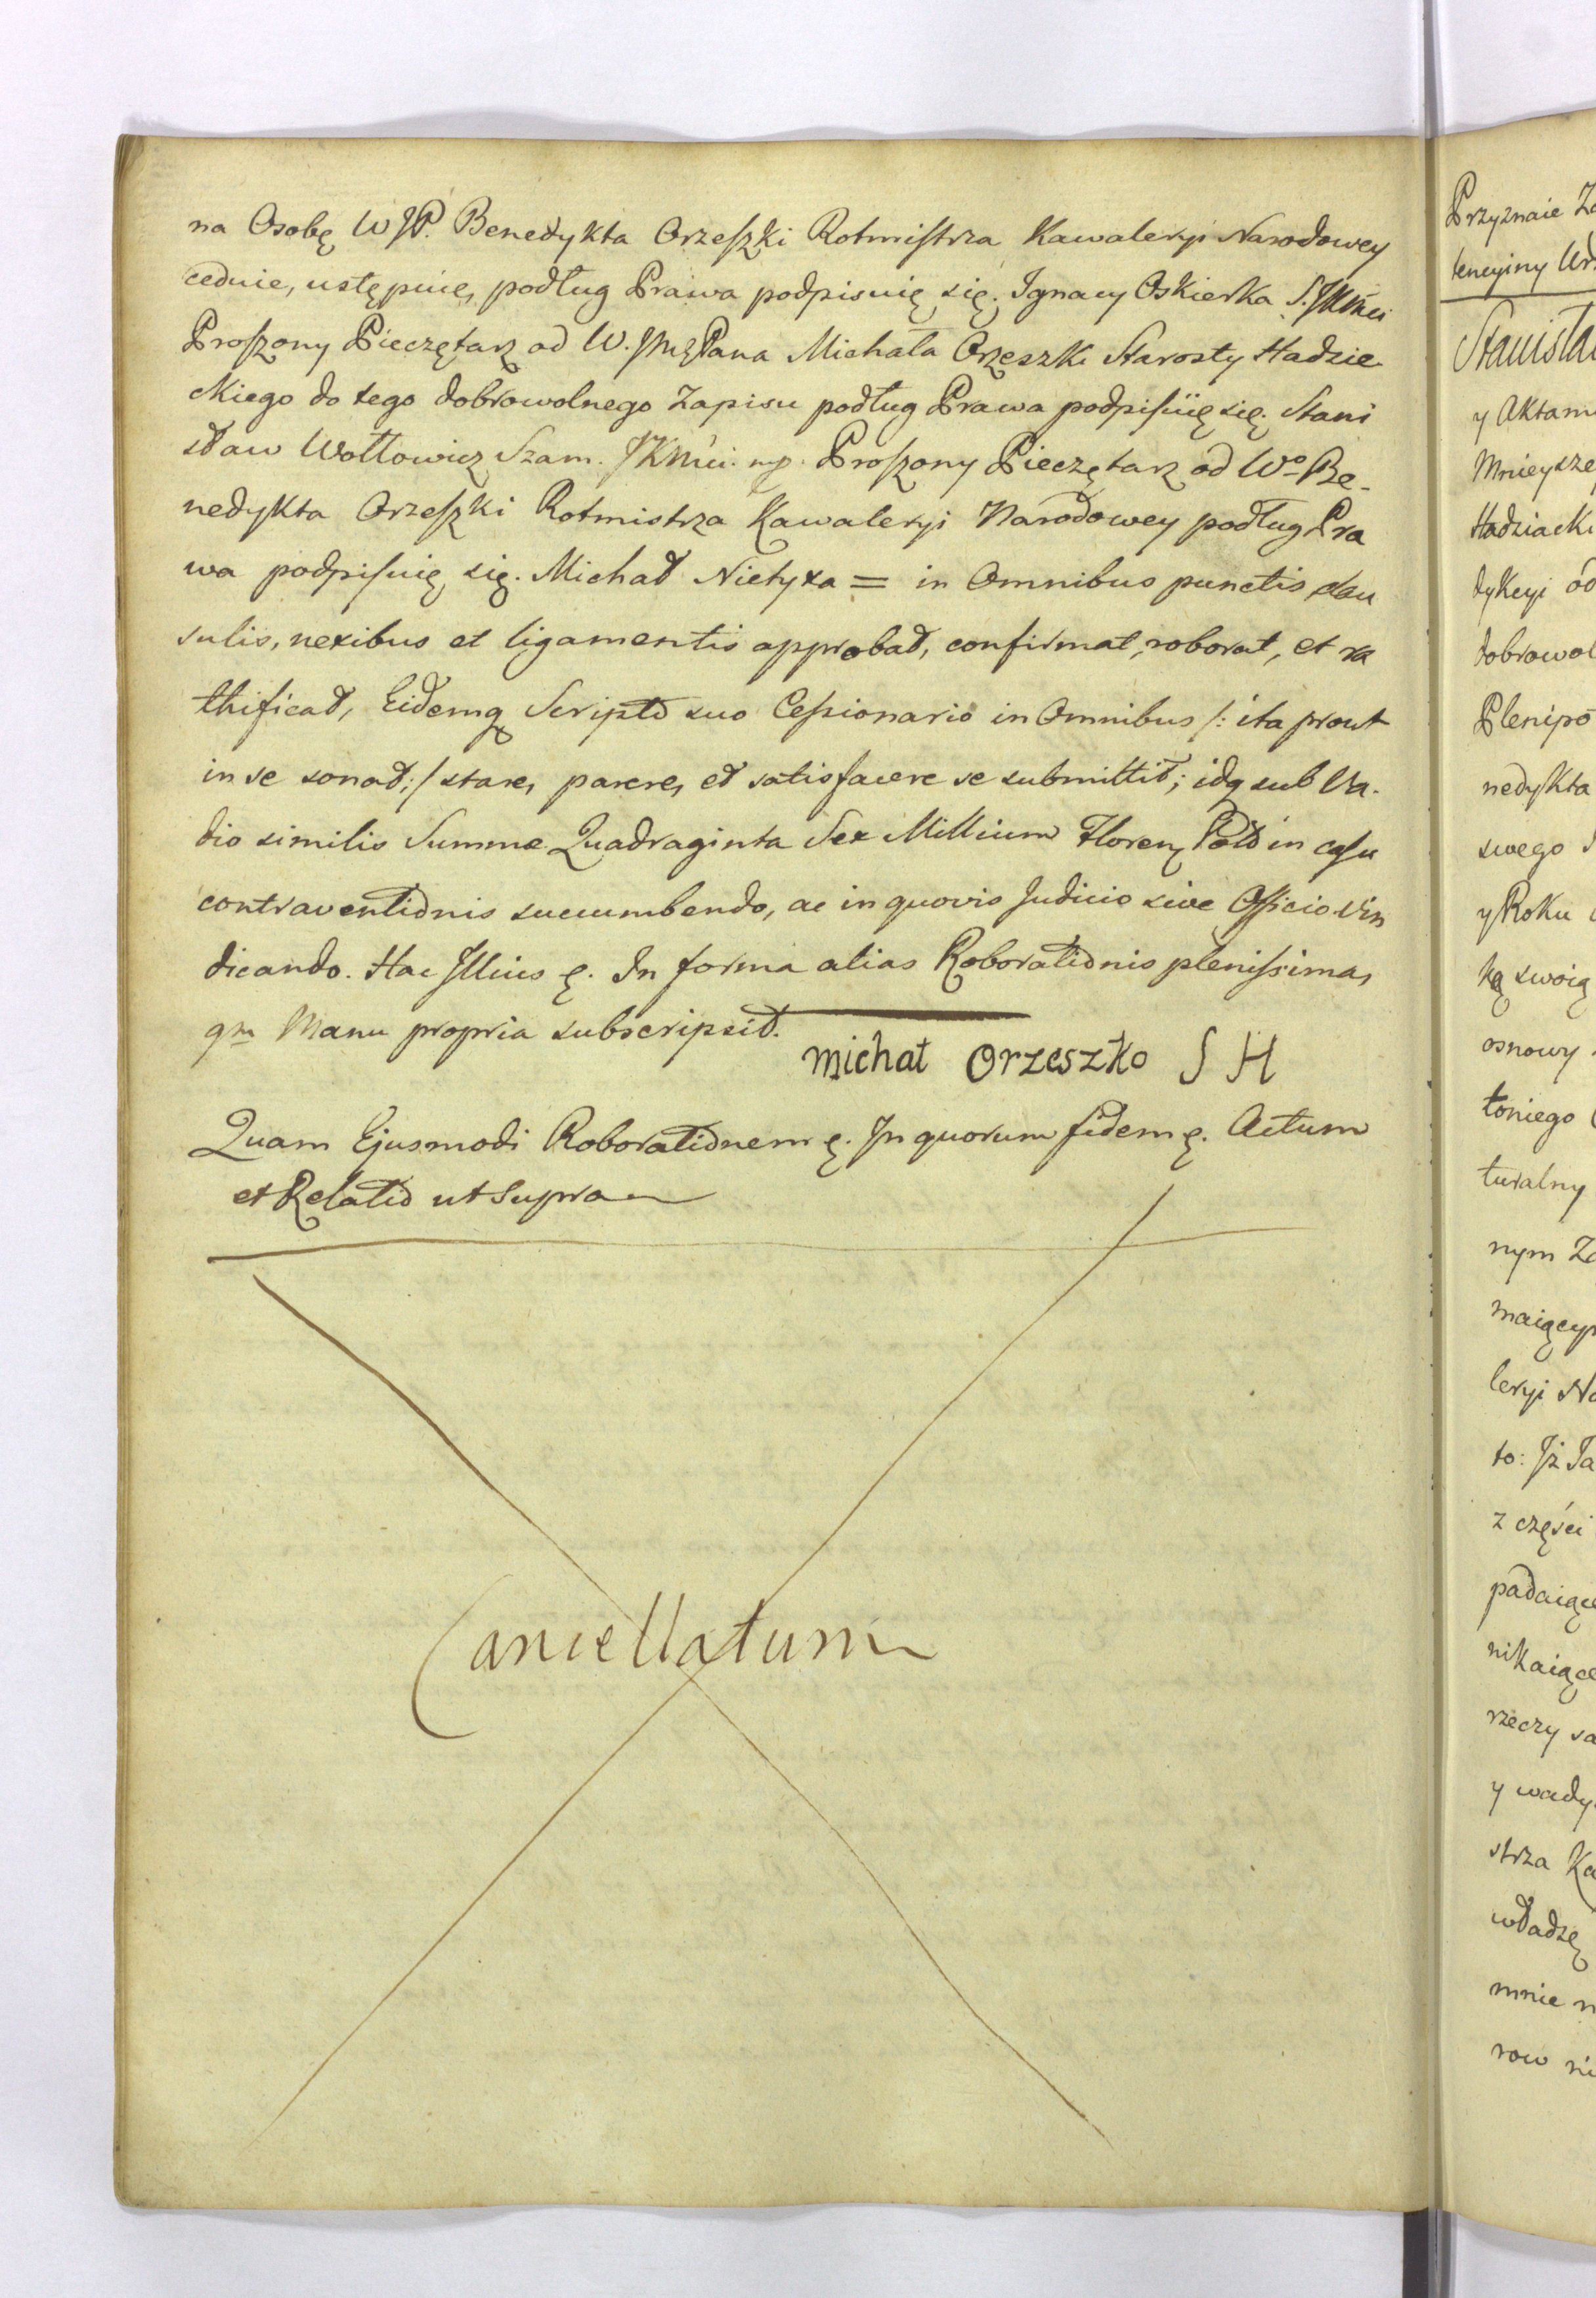 na Osobę WJP. Benedykta Orzeszki Rotmistrza Kawaleryi Narodowey
ceduie, ustępuię, podług Prawa podpisuię się. Ignacy Oskierka S. JKMci
Proszony Pieczętarz od W. JMę Pana Michała Orzeszki Starosty Hadzie
ckiego do tego dobrowolnego Zapisu podług Prawa podpisuię się. Stani
sław Wołłowicz Szam. JKMci. mp. Proszony Pieczętarz od Wo Be-
nedykta Orzeszki Rotmistrza Kawaleryi Narodowey podług Pra
wa podpisuię się. Michał Nietyxa = in Omnibus punctis clau
sulis, nexibus et ligamentis approbat, confirmat, roborat, et ra
thificat, Eidemq Scripto suo Cessionario in Omnibus /: ita prout
in se sonat :/ stare, parere, et satisfacere se submittit; idq sub Va-
dio similis Summæ Quadraginta Sex Millium Floren Pold in casu
contraventionis succumbendo, ac in quovis Judicio sive Officio vin
dicando. Hac Illius ę. In forma alias Roborationis plenissima,
qm Manu propria subscripsit.
Michał Orzeszko S H
Quam Ejusmodi Roborationem ę. In quorum fidem ę. Actum
et Relatio ut Supra
Cancellatum
Przyznaie
tencyiny
Stanisła
y Aktam
Mnieysze
Hadziacki
dykcyi od
dobrowol
Plenipo
nedykta
swego
y Roku
ką swoią
osnowy
toniego
turalny
nym
maiący
leryi
to: Iż Ja
z części
padaiące
nikaiące
rzeczy
y wady
strza Ka
władzę
mnie
row